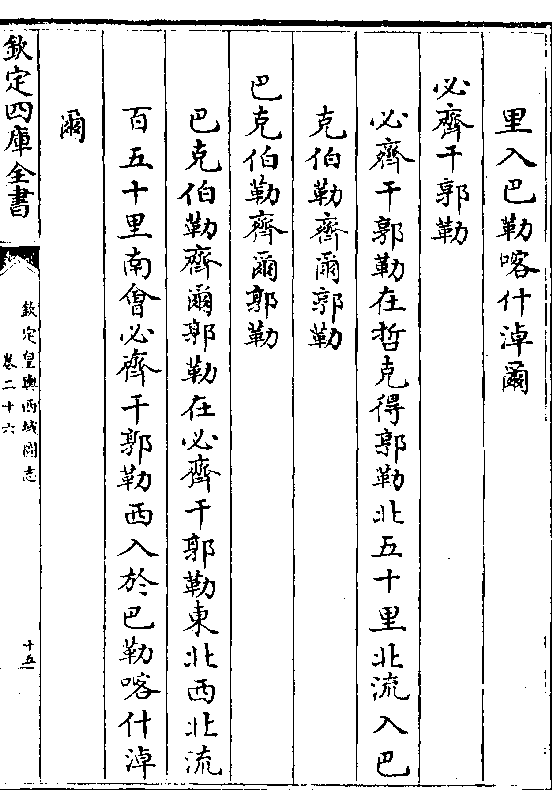 里入巴勒喀什淖爾
必齊干郭勒
必齊干郭勒在哲克得郭勒北五十里北流入巴
克伯勒齊爾郭勒
巴克伯勒齊爾郭勒
巴克伯勒齊爾郭勒在必齊干郭勒東北西北流
百五十里南會必齊干郭勒西入於巴勒喀什淖
爾
欽定四庫全書
欽定皇輿西域圖志
卷二十六
十五